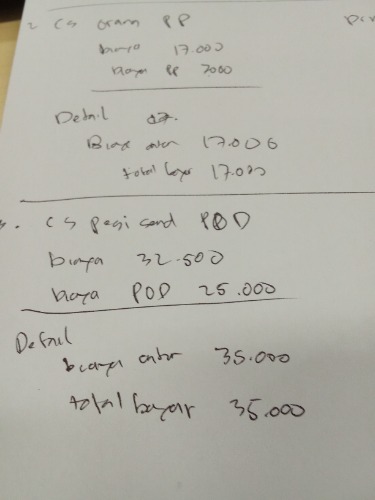 2 CS orang PP
biaya 17.000
biaya PP 7000
Detail
Biaya antar 17.000
total bayar 17.000
3. CS pergi send POD
biaya 32.500
biaya POD 25.000
Detail
biaya antar 35.000
total bayar 35.000